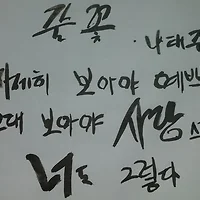 풀 꽃
· 나태주
자세히 보아야 예쁘
보아야 사랑스
너도 그렇다